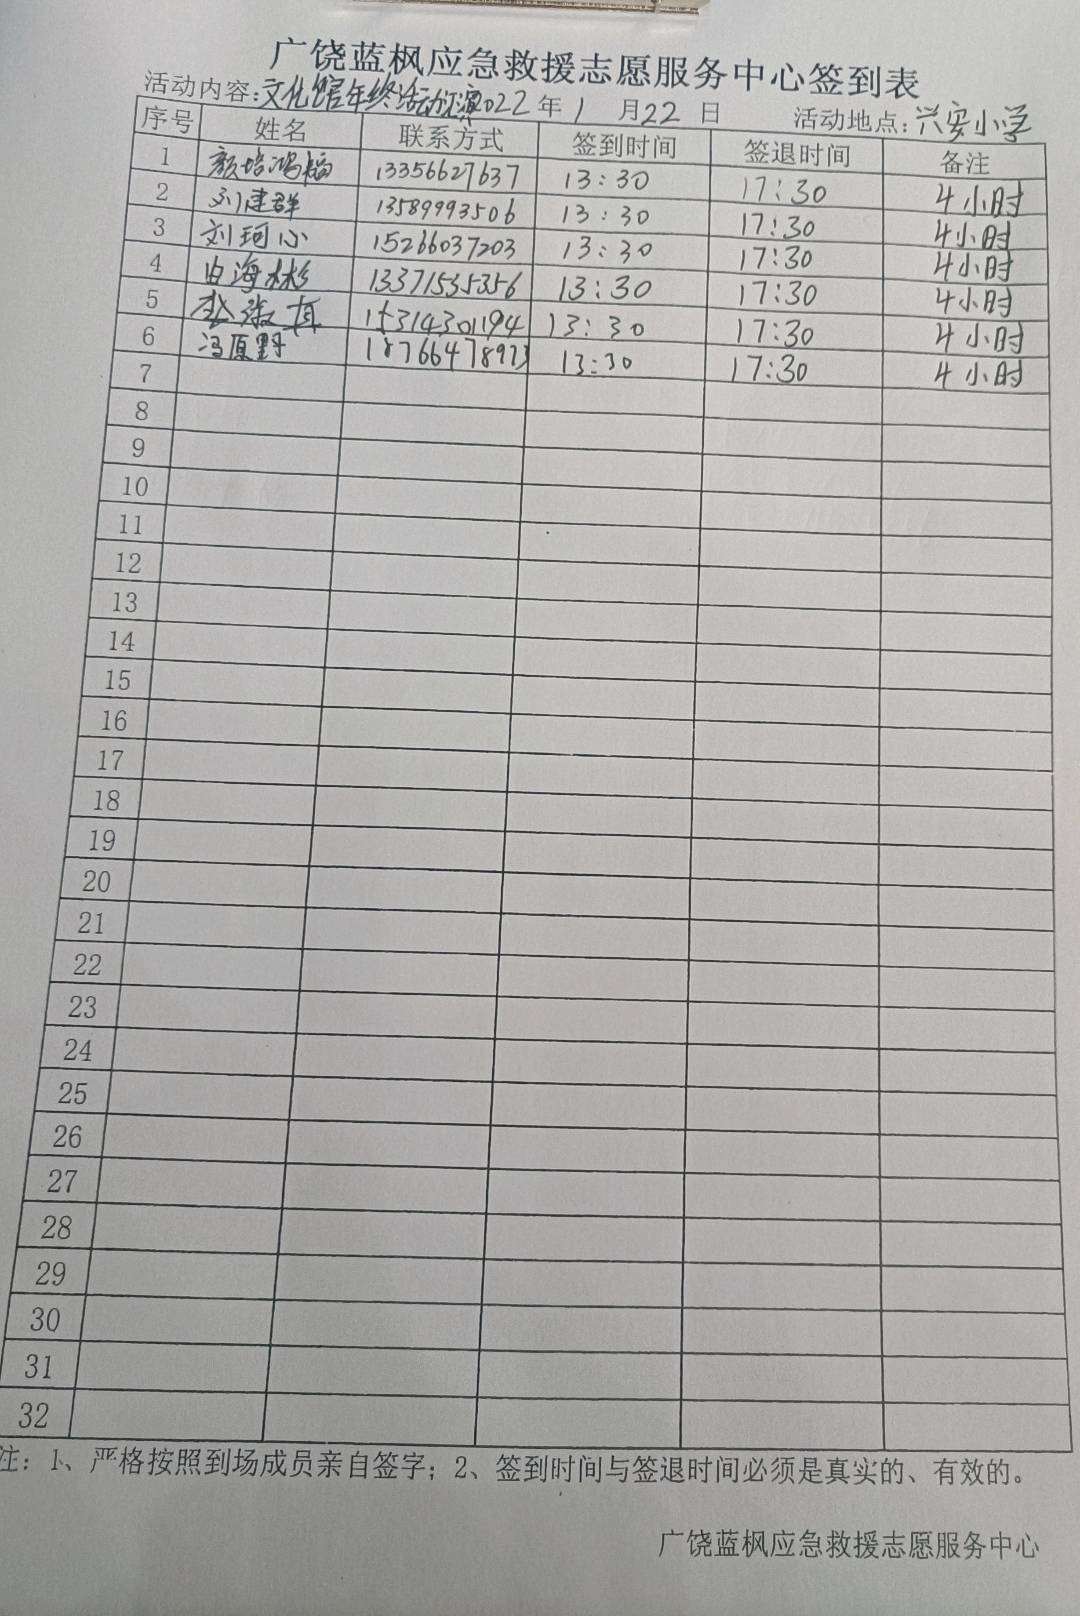 广饶蓝枫应急救援志愿服务中心签到表
活动内容:文化馆年终活动汇演2022年1月22日 活动地点:兴安小学
序号 姓名 联系方式 签到时间 签退时间 备注
1 颜培鸿 13356627637 13:30 17:30 4小时
2 刘建群 13589993506 13:30 17:30 4小时
3 刘珂心 15266037203 13:30 17:30 4小时
4 由海彬 13371535356 13:30 17:30 4小时
5 淑 15314301194 13:30 17:30 4小时
6 冯原野 18766478973 13:30 17:30 4小时
7
8
9
10
11
12
13
14
15
16
17
18
19
20
21
22
23
24
25
26
27
28
29
30
31
32
注：1、严格按照到场成员亲自签字；2、签到时间与签退时间必须是真实的、有效的。
广饶蓝枫应急救援志愿服务中心